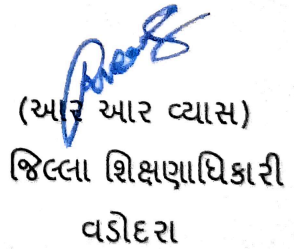 (આર આર વ્યાસ)
જિલ્લા શિક્ષણાધિકારી
વડોદરા